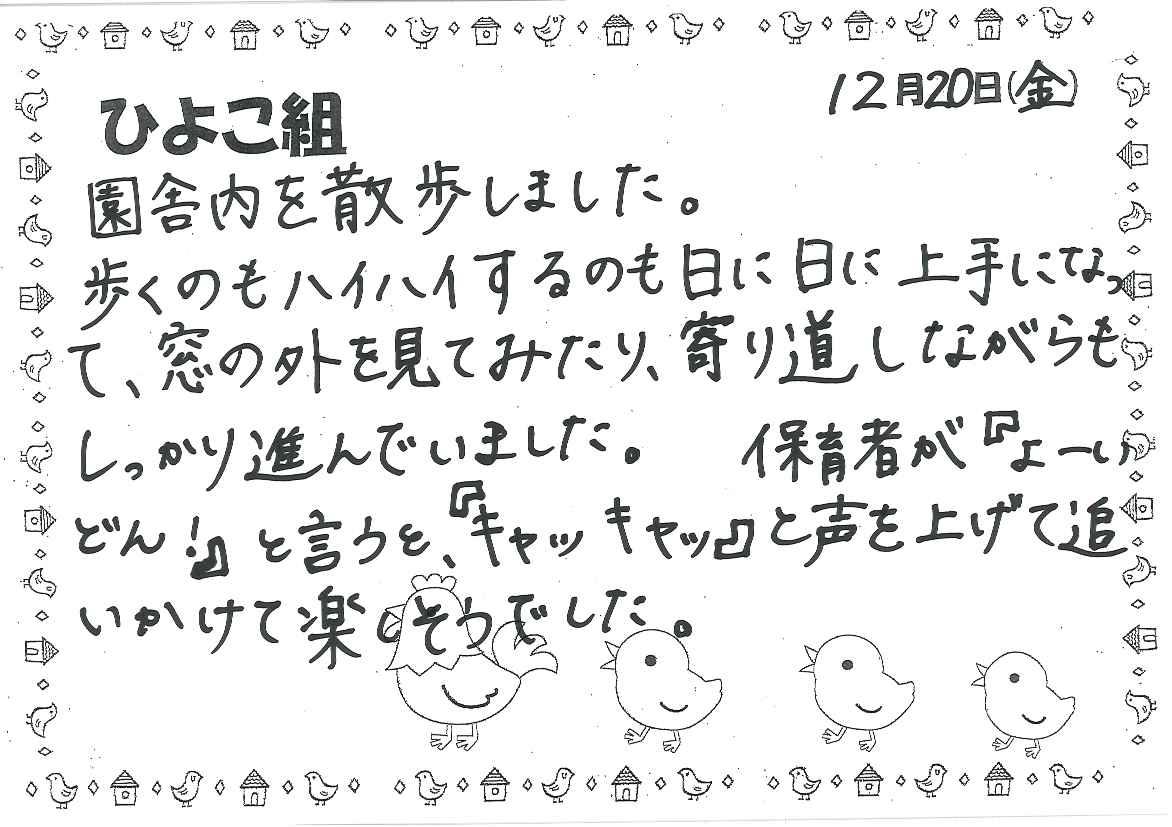 12月20日(金)
ひよこ組
園舎内を散歩しました。
歩くのもハイハイするのも日に日に上手になっ
て、窓の外を見てみたり、寄り道しながらも
しっかり進んでいました。 保育者が『よーい
どん！』と言うと、『キャッキャッ』と声を上げて追
いかけて楽しそうでした。